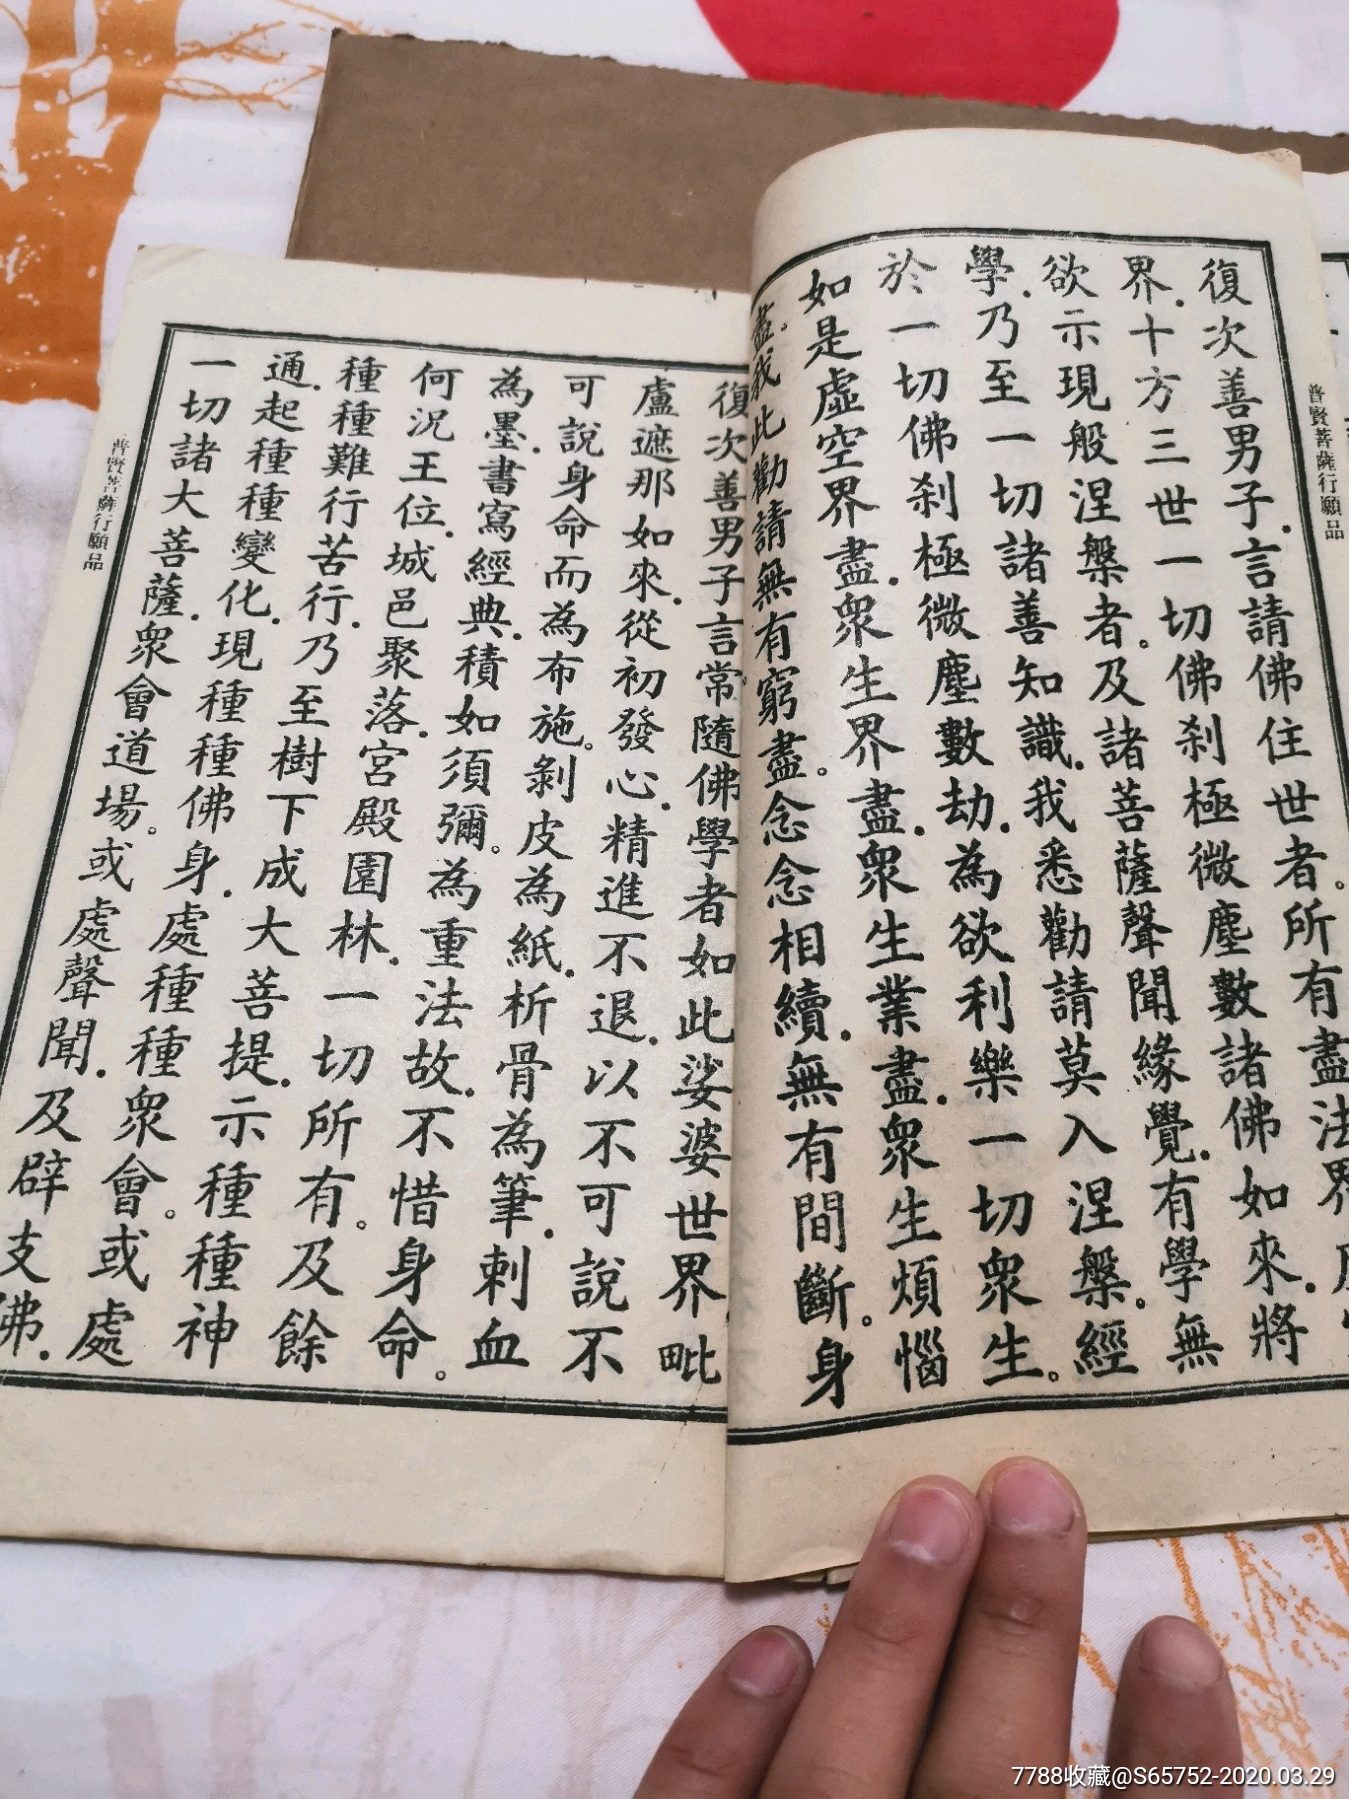 復次善男子.言請佛住世者。所有盡法界
界.十方三世一切佛刹極微塵數諸佛如來.將
欲示現般涅槃者。及諸菩薩聲聞緣覺.有學無
學.乃至一切諸善知識.我悉勸請莫入涅槃。經
於一切佛刹極微塵數劫.為欲利樂一切眾生。
如是虛空界盡.眾生界盡.眾生業盡.眾生煩惱
盡.我此勸請無有窮盡。念念相續.無有間斷。身
復次善男子言常隨佛學者如此娑婆世界毗
盧遮那如來.從初發心.精進不退.以不可說不
可說身命而為布施。剝皮為紙.析骨為筆.刺血
為墨.書寫經典.積如須彌。為重法故.不惜身命。
何況王位.城邑聚落.宮殿園林.一切所有。及餘
種種難行苦行.乃至樹下成大菩提.示種種神
通.起種種變化.現種種佛身.處種種眾會。或處
一切諸大菩薩.眾會道場。或處聲聞.及辟支佛.
普賢菩薩行願品
普賢菩薩行願品
7788收藏@S65752-2020.03.29